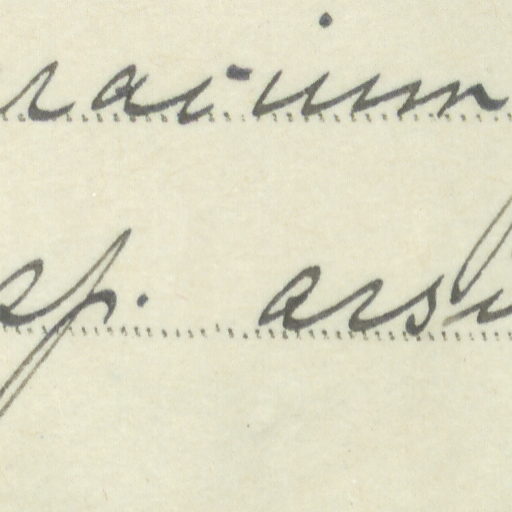 racium
sp. arsi